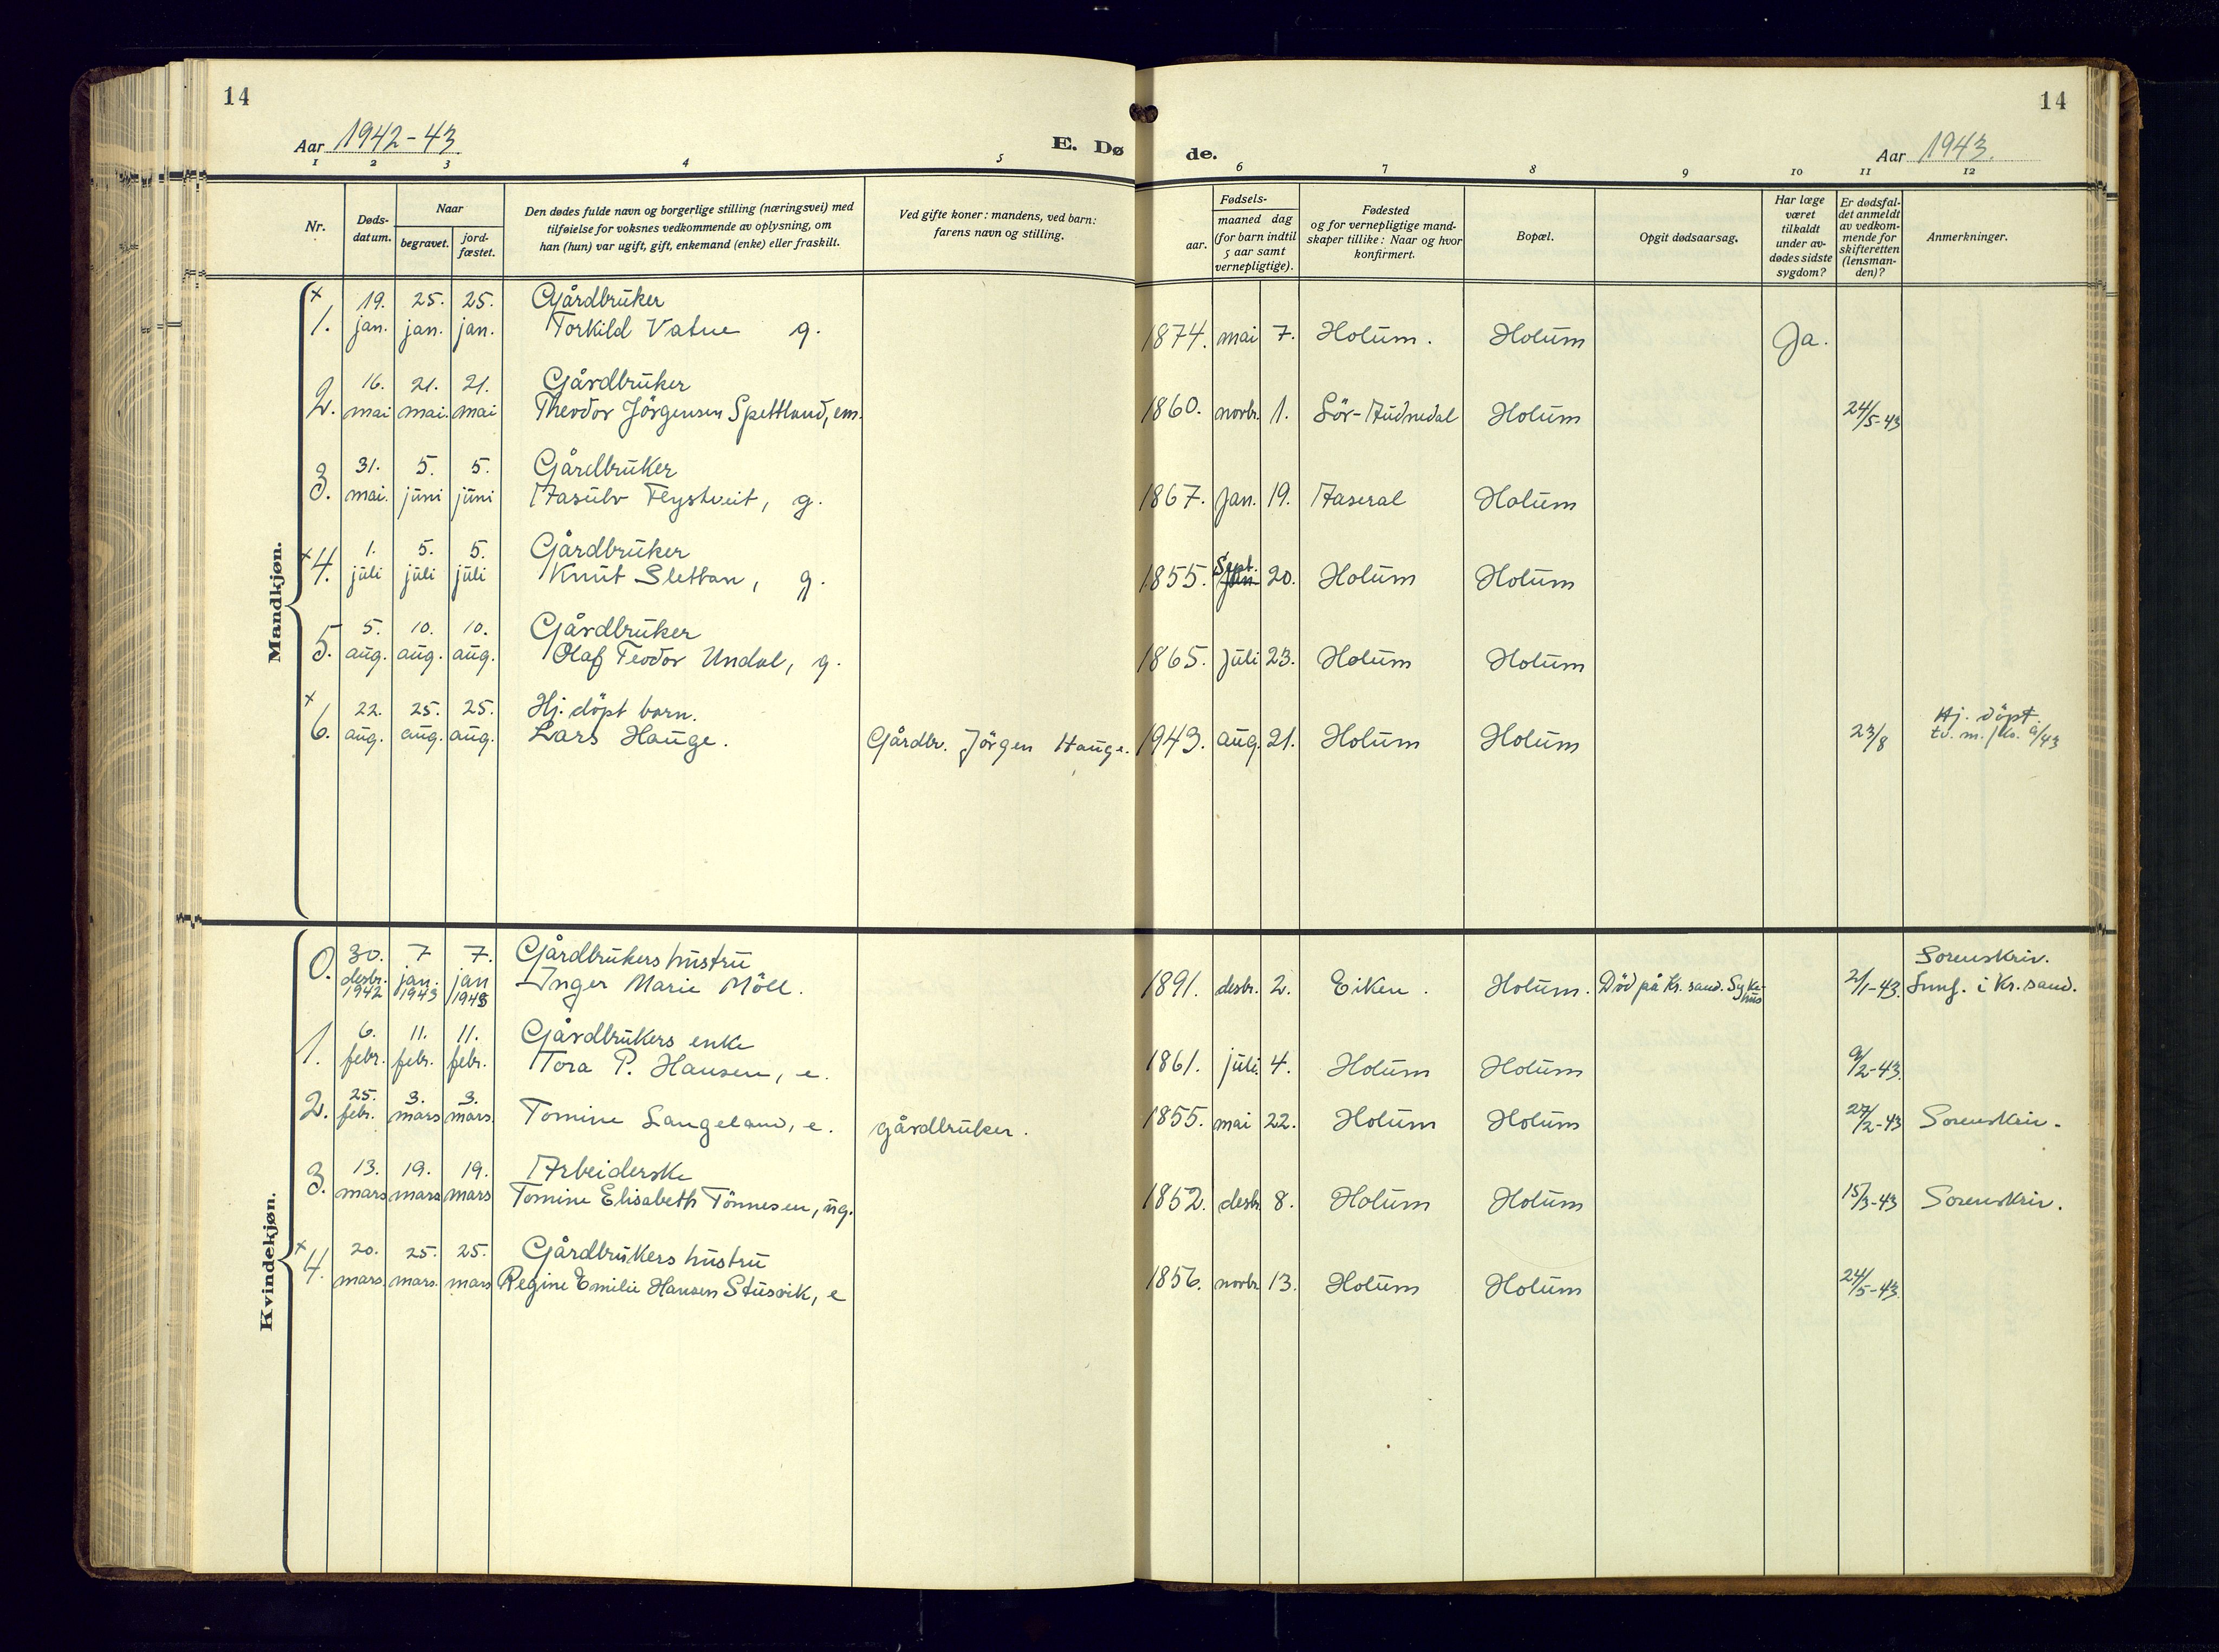 14
14
Aar 1942-43
E. Dø
de.
Aar 1943.
1 2 3 4 5 6 7 8 9 10 11 12
Nr.
Døds-
datum.
Naar
begravet.
jord-
fæstet.
Den dødes fulde navn og borgerlige stilling (næringsvei) med
tilføielse for voksnes vedkommende av oplysning, om
han (hun) var ugift, gift, enkemand (enke) eller fraskilt.
Ved gifte koner: mandens, ved barn:
farens navn og stilling.
aar.
Fødsels-
maaned dag
(for barn indtil
5 aar samt
vernepligtige).
Fødested
og for vernepligtige mand-
skaper tillike: Naar og hvor
konfirmert.
Bopæl.
Opgit dødsaarsag.
Har læge
været
tilkaldt
under av-
dødes sidste
sygdom?
Er dødsfal-
det anmeldt
av vedkom-
mende for
skifteretten
(lensman-
den)?
Anmerkninger.
Mandkjøn.
x 19. 25. 25. Gårdbruker
1. jan. jan. jan. Torkild Vatne g. 1874. mai 7. Holum. Holum Ja.
16. 21. 21. Gårdbruker
2. mai mai. mai Theodor Jörgensen Spettland, em. 1860. novbr. 1. Sör-Audnedal Holum 24/5-43
31. 5. 5. Gårdbruker
3. mai. juni juni Aasulv Flystveit, g. 1867. jan. 19. Aaseral Holum
x 1. 5. 5. Gårdbruker
4. juli juli juli Knut Slettan, g. 1855. Sept. 20. Holum Holum
5. 10. 10. Gårdbruker
5. aug. aug. aug. Olaf Teodor Undal, g. 1865. juli 23. Holum Holum
x 22. 25. 25. Hj. döpt barn.
6. aug. aug. aug. Lars Hauge. Gårdbr. Jörgen Hauge. 1943. aug. 21. Holum Holum 23/8 Hj. döpt.
Kvindekjøn.
0. 30. 7 7. Gårdbrukers hustru Sorenskriv.
desbr. jan. jan Inger Marie Möll. 1891. desbr. 2. Eiken. Holum. Död på Kr. sand. Syke- 2/1-43. i Kr. sand.
1942 1943 1943 hus
6. 11. 11. Gårdbrukers enke
1. febr. febr. febr. Tora P. Hansen, e. 1861. juli. 4. Holum Holum 9/2-43.
25. 3. 3.
2. febr. mars mars. Tomine Langeland, e. gårdbruker. 1855. mai 22. Holum Holum 27/2-43 Sorenskriv.
13. 19. 19. Arbeiderske
3. mars mars mars Tomine Elisabeth Tönnesen, ug. 1862. desbr. 8. Holum Holum 15/3-43 Sorenskriv.
x 20. 25. 25. Gårdbrukers hustru
4. mars. mars. mars Regine Emilie Hansen Stusvik, e 1856. novbr. 13. Holum Holum 24/5-43.